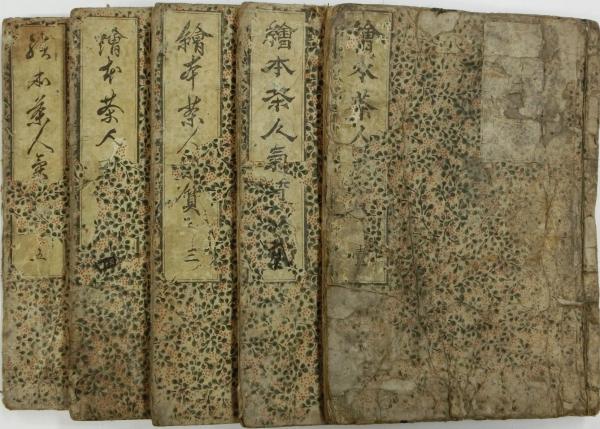 繪本茶人
繪本茶人氣質 貳
繪本茶人 質 三
繪本茶人 四
絵本茶人氣 五